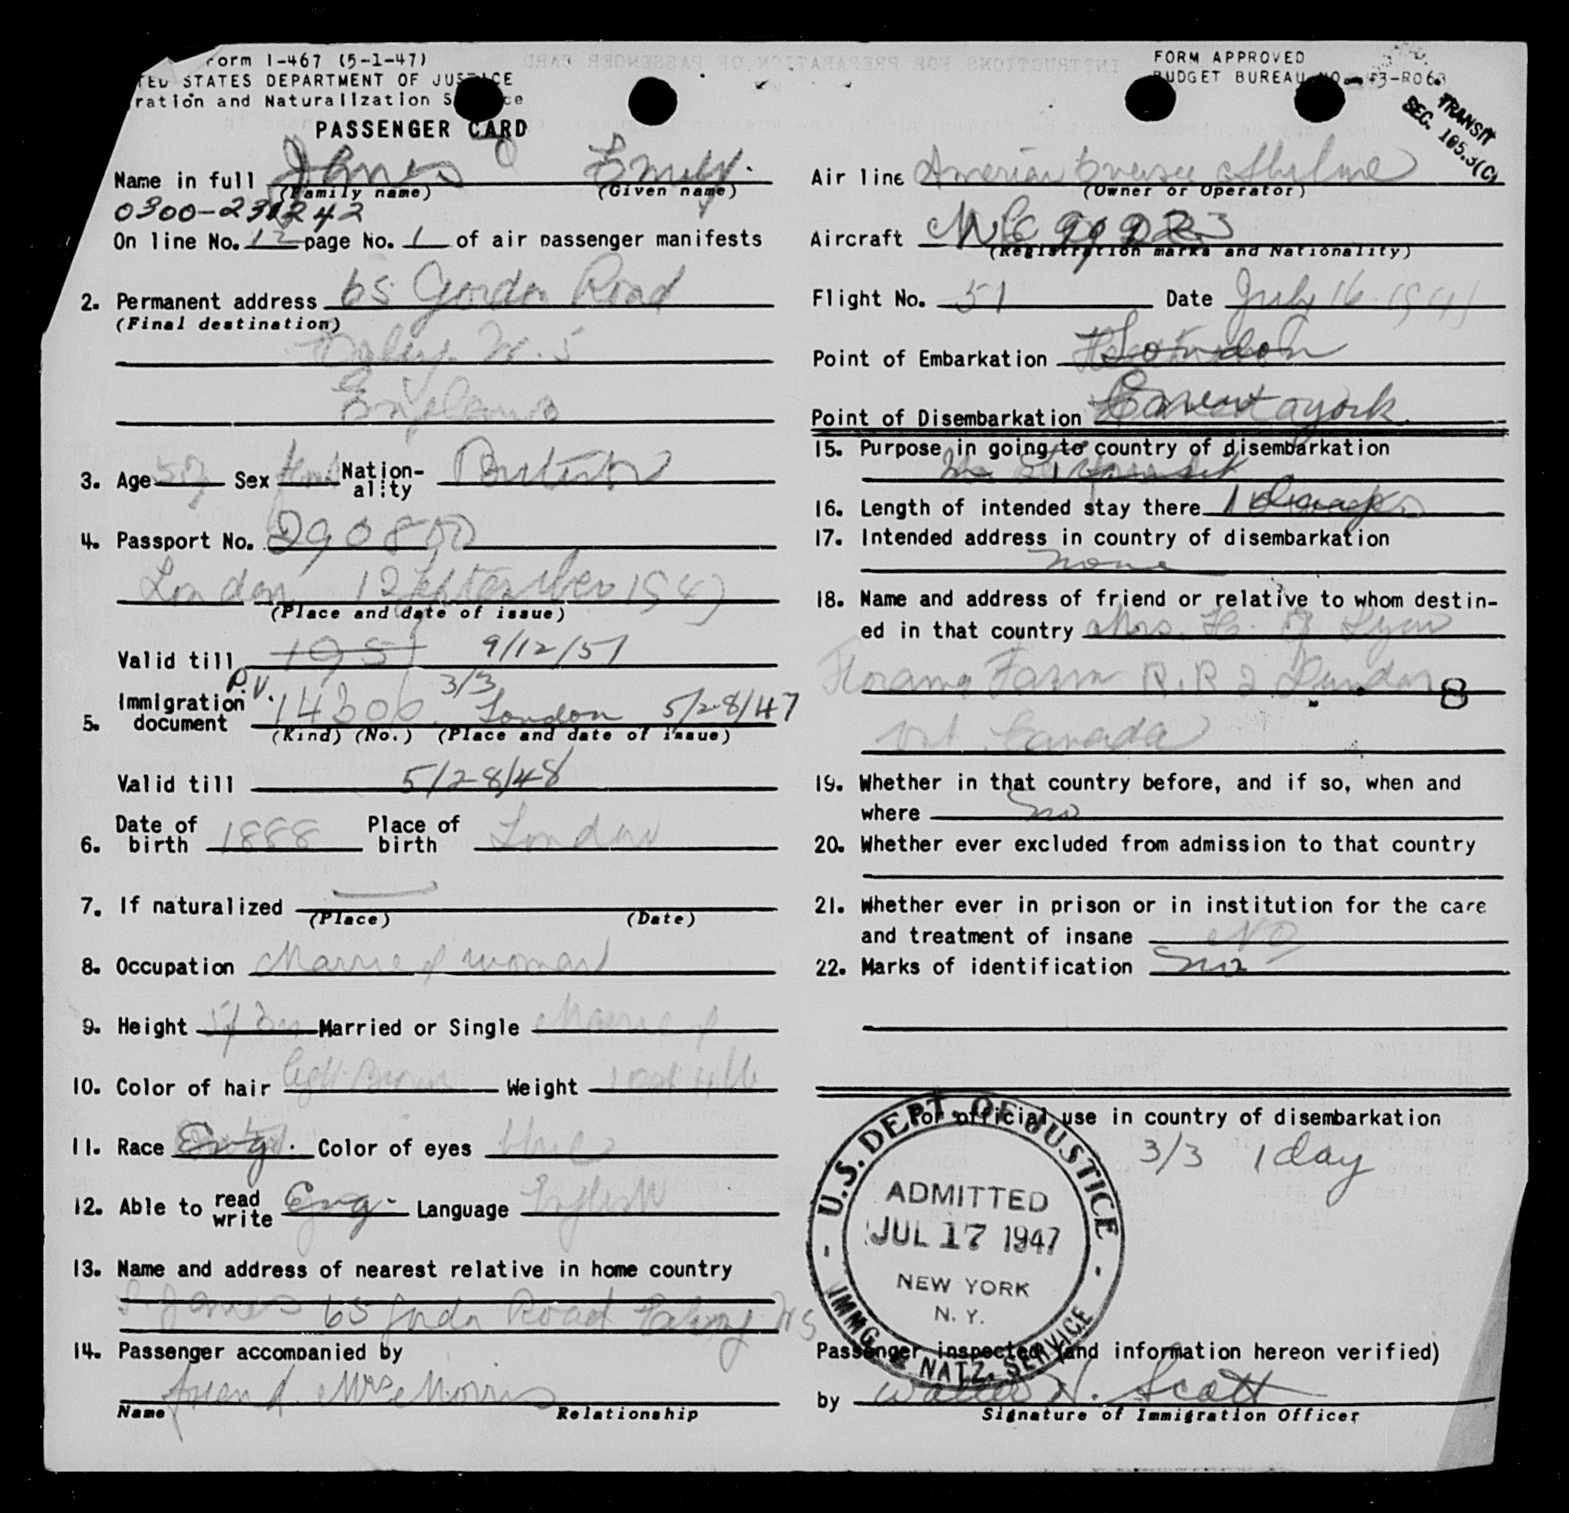 Form I-467 (5-1-47)
UNITED STATES DEPARTMENT OF JUSTICE
Immigration and Naturalization Service
PASSENGER CARD
Name in full Jones Emily
(Family name) (Given name)
On line No. 12 page No. 1 of air passenger manifests
2. Permanent address 65 Gordon Road
(Final destination)
W. 5
England
3. Age Sex Nation-
ality British
4. Passport No. 290800
London 12 September 1947
(Place and date of issue)
Valid till 1951 9/12/51
P.V. 3/3
5. Immigration document 14300 London 5/28/47
(Kind) (No.) (Place and date of issue)
Valid till 5/28/48
6. Date of birth 1888 Place of birth London
7. If naturalized —
(Place) (Date)
8. Occupation Married woman
9. Height Married or Single Married
10. Color of hair Light Brown Weight
11. Race Eng. Color of eyes blue
12. Able to read write Eng. Language English
13. Name and address of nearest relative in home country
Jones 65 Road Ealing W5
14. Passenger accompanied by
friend Mrs Morris
Name Relationship
FORM APPROVED
BUDGET BUREAU NO. 43-R063
TRANSIT
SEC. 165.3(C)
Air line American Oversea Airline
(Owner or Operator)
Aircraft NC 90923
(Registration marks and Nationality)
Flight No. 51 Date July 16 194
Point of Embarkation London
Point of Disembarkation New York
15. Purpose in going to country of disembarkation
In Transit
16. Length of intended stay there 1 day
17. Intended address in country of disembarkation
none
18. Name and address of friend or relative to whom destin-
ed in that country Mrs. H. Lyon
Farm R.R 2 Dundas 8
Ont. Canada
19. Whether in that country before, and if so, when and
where no
20. Whether ever excluded from admission to that country
21. Whether ever in prison or in institution for the care
and treatment of insane NO
22. Marks of identification no
For official use in country of disembarkation
3/3 1 day
U.S. DEPT. OF JUSTICE
ADMITTED
JUL 17 1947
NEW YORK
N. Y.
IMMG. & NATZ. SERVICE
Passenger inspected (and information hereon verified)
by Walter H. Scott
Signature of Immigration Officer